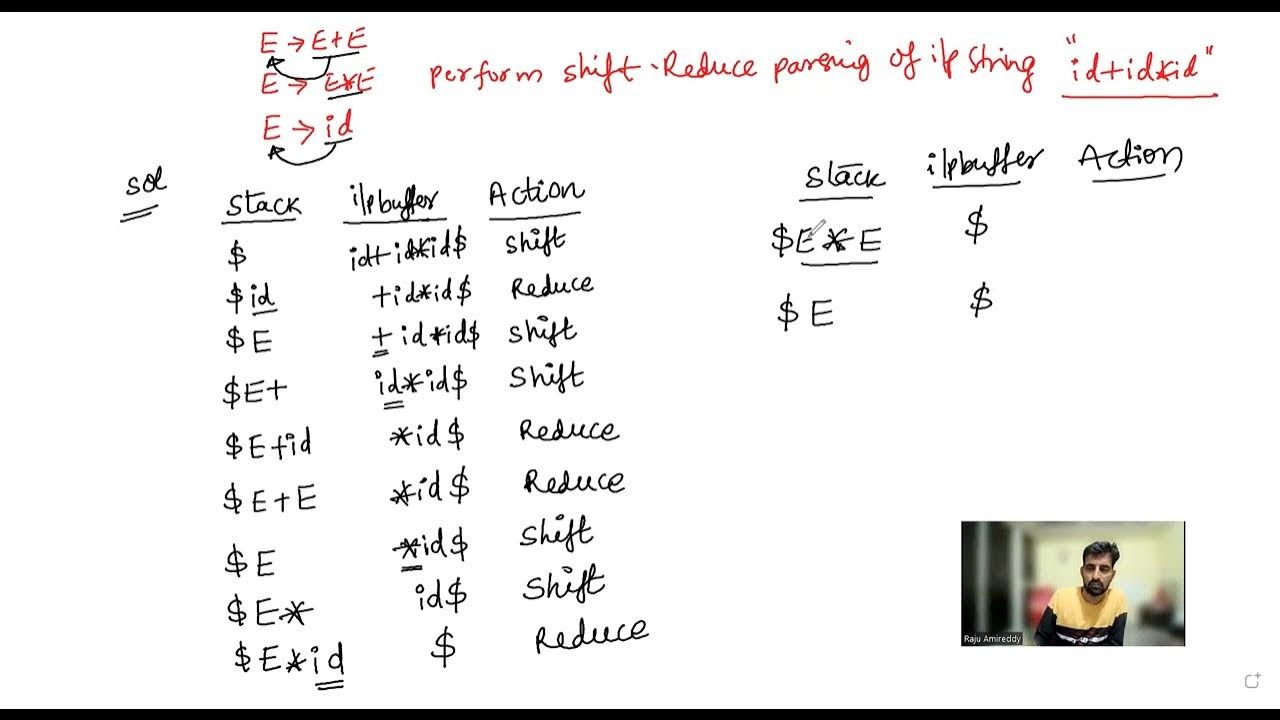 E → E+E
E → E*E
E → id
perform shift-Reduce parsing of i/p string "id+id*id"
sol
Stack i/p buffer Action
$ id+id*id$ Shift
$id +id*id$ Reduce
$E +id*id$ Shift
$E+ id*id$ Shift
$E+id *id$ Reduce
$E+E *id$ Reduce
$E *id$ Shift
$E* id$ Shift
$E*id $ Reduce
Stack i/p buffer Action
$E*E $
$E $
Raju Amireddy